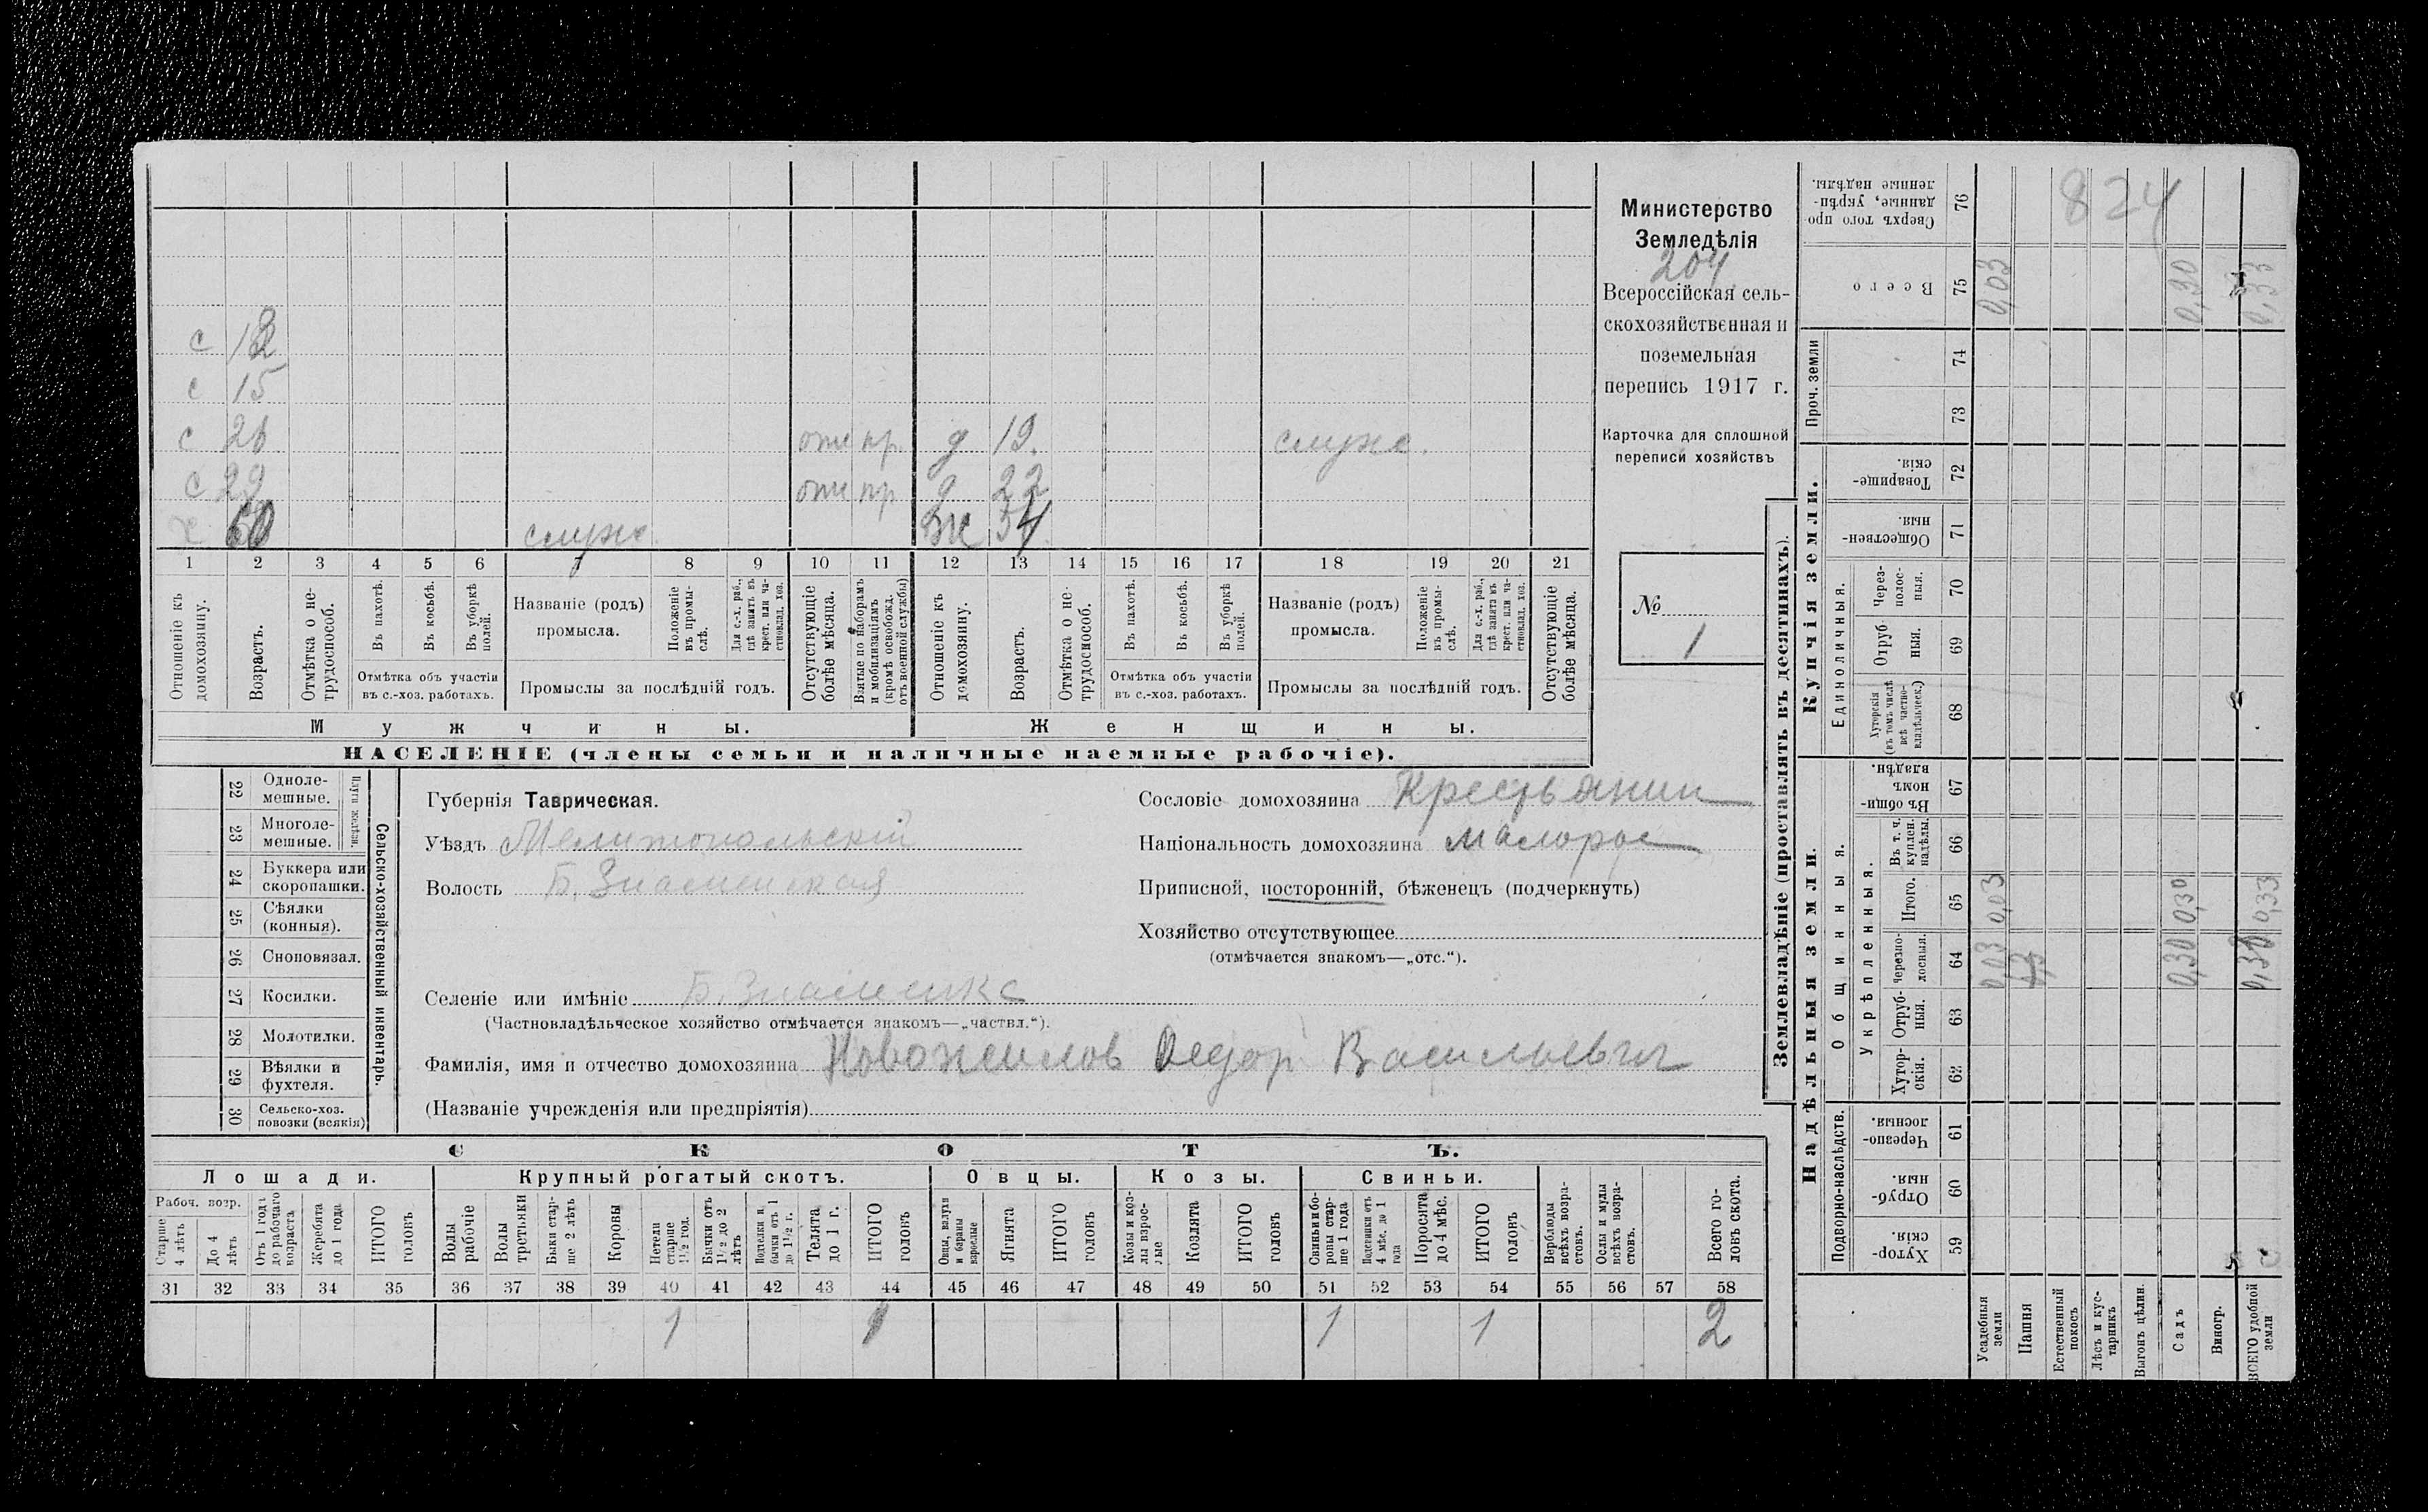 с 12
с 15
с 26 отс пр. д 19. служ.
с 29 отс пр д 22
х 60 служ. Ж 54
1 2 3 4 5 6 7 8 9 10 11 12 13 14 15 16 17 18 19 20 21
Отношеніе къ домохозяину.
Возрастъ.
Отмѣтка о не-
трудоспособ.
Въ пахотѣ.
Въ косьбѣ.
Въ уборкѣ полей.
Отмѣтка объ участіи
въ с.-хоз. работахъ.
Названіе (родъ)
промысла.
Положеніе въ промы-
слѣ.
Для с.-х. раб.,
гдѣ занятъ въ
крест. или ча-
стновлад. хоз.
Промыслы за послѣдній годъ.
Отсутствующіе
болѣе мѣсяца.
Взятые по наборамъ
и мобилизаціямъ
(кромѣ освобожд.
отъ военной службы)
Отношеніе къ
домохозяину.
Возрастъ.
Отмѣтка о не-
трудоспособ.
Въ пахотѣ.
Въ косьбѣ.
Въ уборкѣ
полей.
Отмѣтка объ участіи
въ с.-хоз. работахъ.
Названіе (родъ)
промысла.
Положеніе
въ промы-
слѣ.
Для с.-х. раб.,
гдѣ занята въ
крест. или ча-
стновлад. хоз.
Промыслы за послѣдній годъ.
Отсутствующіе
болѣе мѣсяца.
Мужчины.
Женщины.
НАСЕЛЕНІЕ (члены семьи и наличные наемные рабочіе).
Министерство
Земледѣлія
204
Всероссійская сель-
скохозяйственная и
поземельная
перепись 1917 г.
Карточка для сплошной
переписи хозяйствъ
№
1
22 Одноле-
мешные.
23 Многоле-
мешные.
Плуги желѣзн.
24 Буккера или
скоропашки.
25 Сѣялки
(конныя).
26 Сноповязал.
27 Косилки.
28 Молотилки.
29 Вѣялки и
фухтеля.
30 Сельско-хоз.
повозки (всякія)
Сельско-хозяйственный инвентарь.
Губернія Таврическая.
Уѣздъ Мелитопольскій
Волость Б. Знаменская
Сословіе домохозяина Крестьянин
Національность домохозяина малорос
Приписной, посторонній, бѣженецъ (подчеркнуть)
Хозяйство отсутствующее
(отмѣчается знакомъ—„отс.“).
Селеніе или имѣніе Б. Знаменка
(Частновладѣльческое хозяйство отмѣчается знакомъ—„частвл.“).
Фамилія, имя и отчество домохозяина Новожилов Федор Васильевич
(Названіе учрежденія или предпріятія)
СКОТЪ.
Лошади.
Крупный рогатый скотъ.
Овцы.
Козы.
Свиньи.
Рабоч. возр.
Старше
4 лѣтъ
До 4
лѣтъ
Отъ 1 года
до рабочаго
возраста
Жеребята
до 1 года
ИТОГО
головъ
Волы
рабочіе
Волы
третьяки
Быки стар-
ше 2 лѣтъ
Коровы
Нетели
старше
1½ год.
Бычки отъ
1½ до 2
лѣтъ
Подтелки и
бычки отъ 1
до 1½ г.
Телята
до 1 г.
ИТОГО
головъ
Овцы, валухи
и бараны
взрослые
Ягнята
ИТОГО
головъ
Козы и коз-
лы взрос-
лые
Козлята
ИТОГО
головъ
Свиньи и бо-
ровы стар-
ше 1 года
Подсвинки отъ
4 мѣс. до 1
года
Поросята
до 4 мѣс.
ИТОГО
головъ
Верблюды
всѣхъ возра-
стовъ.
Ослы и мулы
всѣхъ возра-
стовъ.
Всего го-
ловъ скота.
31 32 33 34 35 36 37 38 39 40 41 42 43 44 45 46 47 48 49 50 51 52 53 54 55 56 57 58
1 1 1 1 2
Землевладѣніе (проставлять въ десятинахъ).
Надѣльныя земли.
Купчія земли.
Проч. земли
824
76 Сверхъ того про-
данные, укрѣп-
ленные надѣлы.
75 Всего 0,03 0,30 0,33
74
73
72 Товарище-
скія.
71 Обществен-
ныя.
Единоличныя.
70 Через-
полос-
ныя.
69 Отруб-
ныя.
68 Хуторскія
(въ томъ числѣ
всѣ частно-
владѣльческ.)
67 Въ общи-
номъ
владѣн.
Общинныя.
Укрѣпленныя.
66 Въ т. ч.
куплен.
надѣлы.
65 Итого. 0,03 0,30 0,33
64 Черезпо-
лосныя. 0,03 0,30
63 Отруб-
ныя.
62 Хутор-
скія.
Подворно-наслѣдств.
61 Черезпо-
лосныя.
60 Отруб-
ныя.
59 Хутор-
скія.
Усадебныя
земли
Пашня
Естественный
покосъ
Лѣсъ и кус-
тарникъ
Выгонъ цѣлин.
Садъ
Виногр.
ВСЕГО удобной
земли